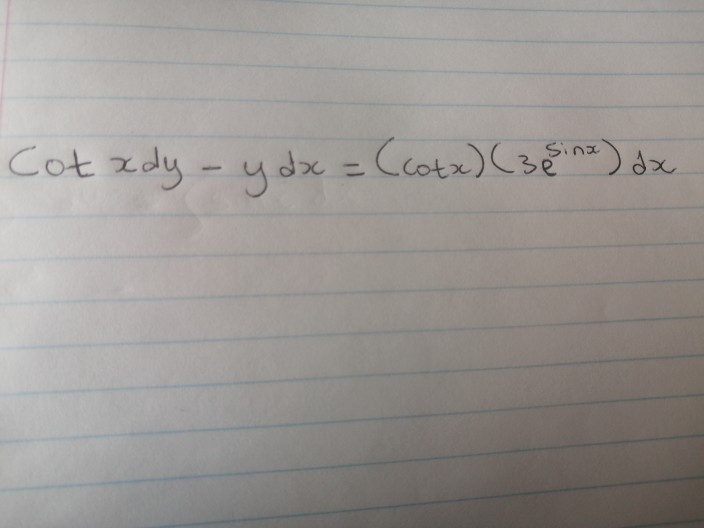 Cot x dy - y dx = (cotx)(3e^sinx) dx